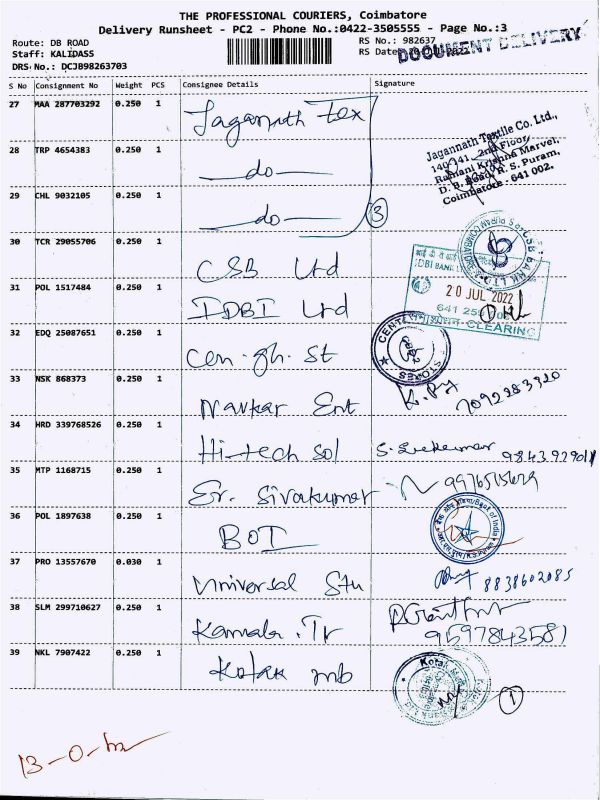 THE PROFESSIONAL COURIERS, Coimbatore
Delivery Runsheet - PC2 - Phone No.:0422-3505555 - Page No.:3
Route: DB ROAD
Staff: KALIDASS
DRS No.: DCJB98263703
RS No.: 982637
RS Date:
DOCUMENT DELIVERY
S No Consignment No Weight PCS Consignee Details Signature
27 MAA 287703292 0.250 1 Jagannath Tex
28 TRP 4654383 0.250 1 —do—
29 CHL 9032105 0.250 1 —do— 3
Jagannath Textile Co. Ltd.,
140/141, 2nd Floor,
Ramani Krishna Marvel,
D. B. Road, R. S. Puram,
Coimbatore - 641 002.
30 TCR 29055706 0.250 1 CSB Ltd
CSB BANK LTD
31 POL 1517484 0.250 1 IDBI Ltd
IDBI BANK
20 JUL 2022
CLEARING
32 EDQ 25087651 0.250 1 Cen. gh. St
STORES
33 NSK 868373 0.250 1 Navkar Ent 7092283320
34 HRD 339768526 0.250 1 Hi-tech Sol
35 MTP 1168715 0.250 1 Er. Sivakumar
36 POL 1897638 0.250 1 BOI
Bank of India
37 PRO 13557670 0.030 1 Universal Stu 8838602085
38 SLM 299710627 0.250 1 Kamala. Tr 9597843581
39 NKL 7907422 0.250 1 Kotak mb
Kotak
1